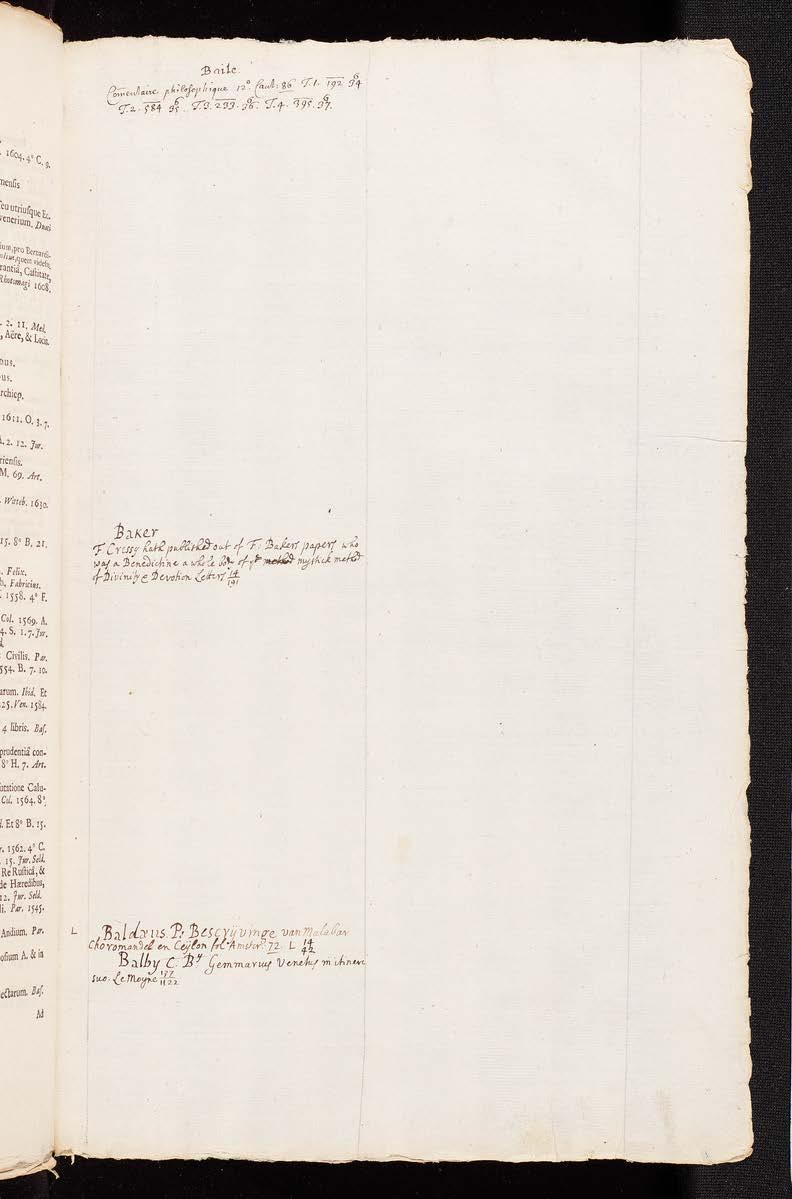 1604. 4° C. 9.
menſis
ſeu utriuſque Ec-
venerium. Duaci
ium, pro Bernardi-
rantiâ, Caſtitate,
Rhotomagi 1608.
. 2. 11. Med.
, Aëre, & Locis.
ous.
us.
rchiep.
1611. O. 3. 7.
A. 2. 12. Jur.
rienſis.
M. 69. Art.
Witeb. 1630.
15. 8° B. 21.
. Felix.
b. Fabricius.
. 1558. 4° F.
Col. 1569. A.
4. S. 1. 7. Jur.
Civilis. Par.
554. B. 7. 10.
arum. Ibid. Et
25. Ven. 1584.
4 libris. Baſ.
prudentiâ con-
8° H. 7. Art.
utatione Calu-
Col. 1564. 8°.
. Et 8° B. 15.
. 1562. 4° C.
15. Jur. Seld.
Re Ruſticâ, &
de Hæredibus,
12. Jur. Seld.
li. Par. 1545.
Andium. Par.
oſium A. & in
ectarum. Baſ.
Ad
Baile
Com̄entaire philosophique 12°. Cant: 86 T.1. 192. 6/34
T.2. 584 6/35. T.3. 233. 6/36. T.4. 395. 6/37.
Baker
F Cressy hath published out of F. Bakers papers who
was a Benedictine a whole body of ye method mystick method
of Divinity & Devotion Letters 14/191
L Baldæus. P: Bescryvinge van Malabar
Choromandel en Ceylon fol° Amster. 72. L 14/42
Balby C: By Gemmarius Venetus in itinere
suo. Le Moyne 137/1122